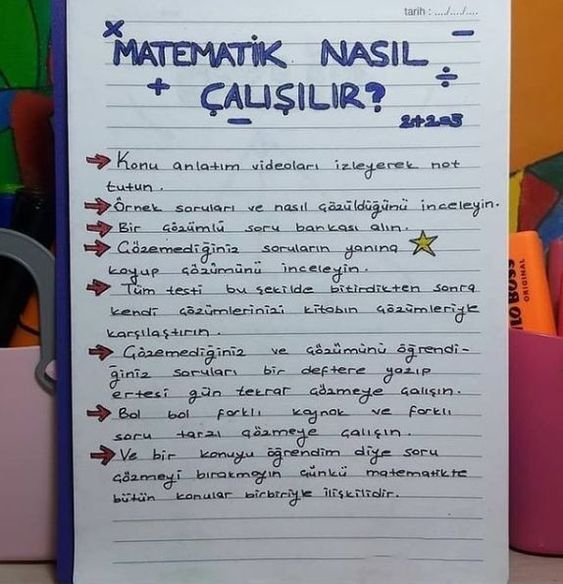 tarih : ..../..../....
MATEMATİK NASIL
ÇALIŞILIR?
2+2=5
Konu anlatım videoları izleyerek not
tutun.
Örnek soruları ve nasıl çözüldüğünü inceleyin.
Bir çözümlü soru bankası alın.
Çözemediğiniz soruların yanına
koyup çözümünü inceleyin.
Tüm testi bu şekilde bitirdikten sonra
kendi çözümlerinizi kitabın çözümleriyle
karşılaştırın.
Çözemediğiniz ve çözümünü öğrendi-
ğiniz soruları bir deftere yazıp
ertesi gün tekrar çözmeye çalışın.
Bol bol farklı kaynak ve farklı
soru tarzı çözmeye çalışın.
Ve bir konuyu öğrendim diye soru
çözmeyi bırakmayın çünkü matematikte
bütün konular birbiriyle ilişkilidir.
LO BOSS
ORIGINAL